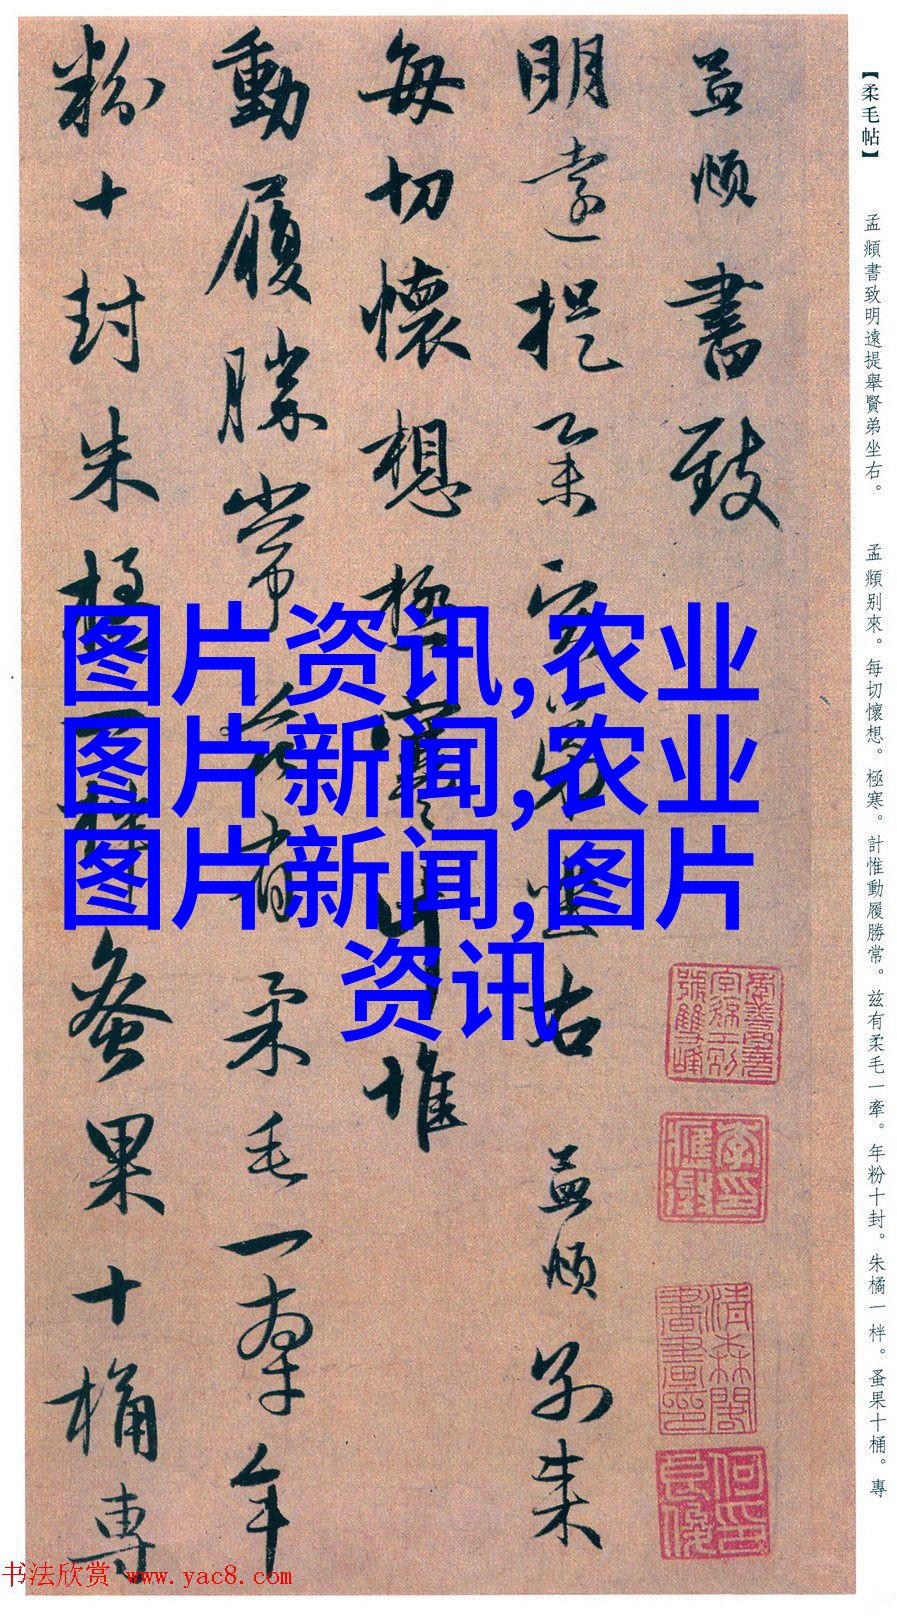 【柔毛帖】
孟頫書致明遠提舉賢弟坐右。
孟頫别來。每切懷想。極寒。計惟動履勝常。兹有柔毛一牽。年粉十封。朱橘一柈。蚤果十桶。專
孟頫書致
明遠提舉賢弟坐右 孟頫别來
每切懷想極寒計惟
動履勝常兹有柔毛一牽年
粉十封朱橘一柈蚤果十桶專
图片资讯,农业
图片新闻,农业
图片新闻,图片
资讯
书法欣赏 www.yac8.com